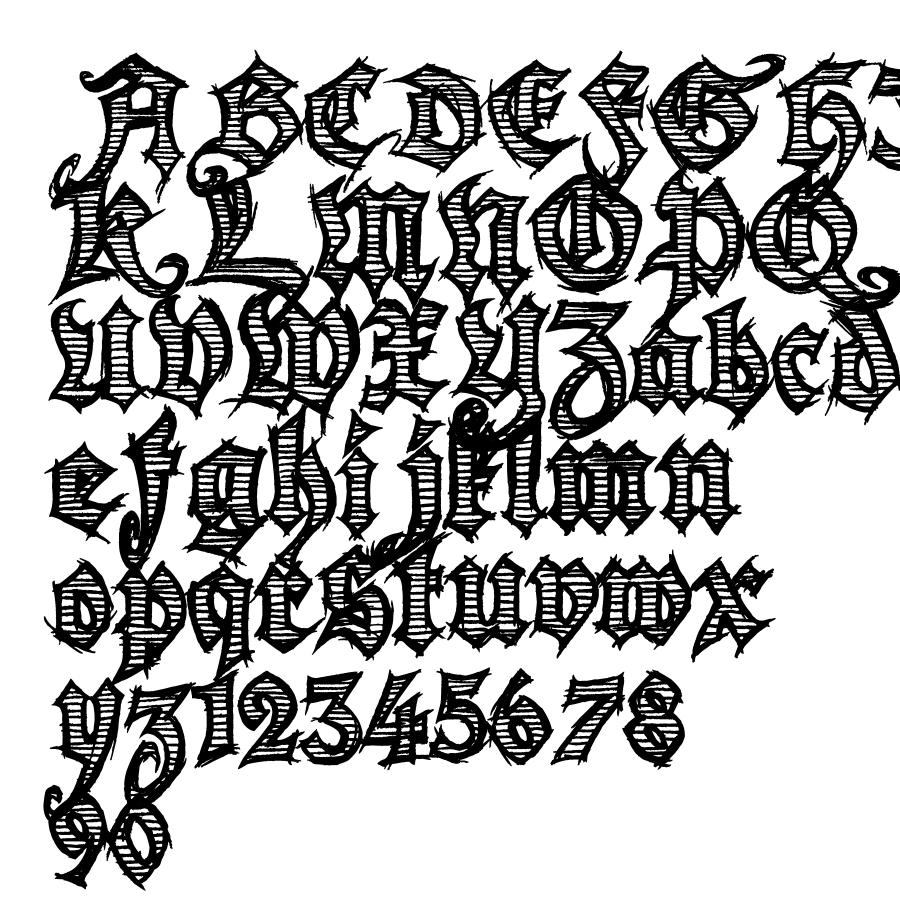 ABCDEFGH
KLMNOPQ
UVWXYZabcd
efghijklmn
opqrstuvwx
yz12345678
90